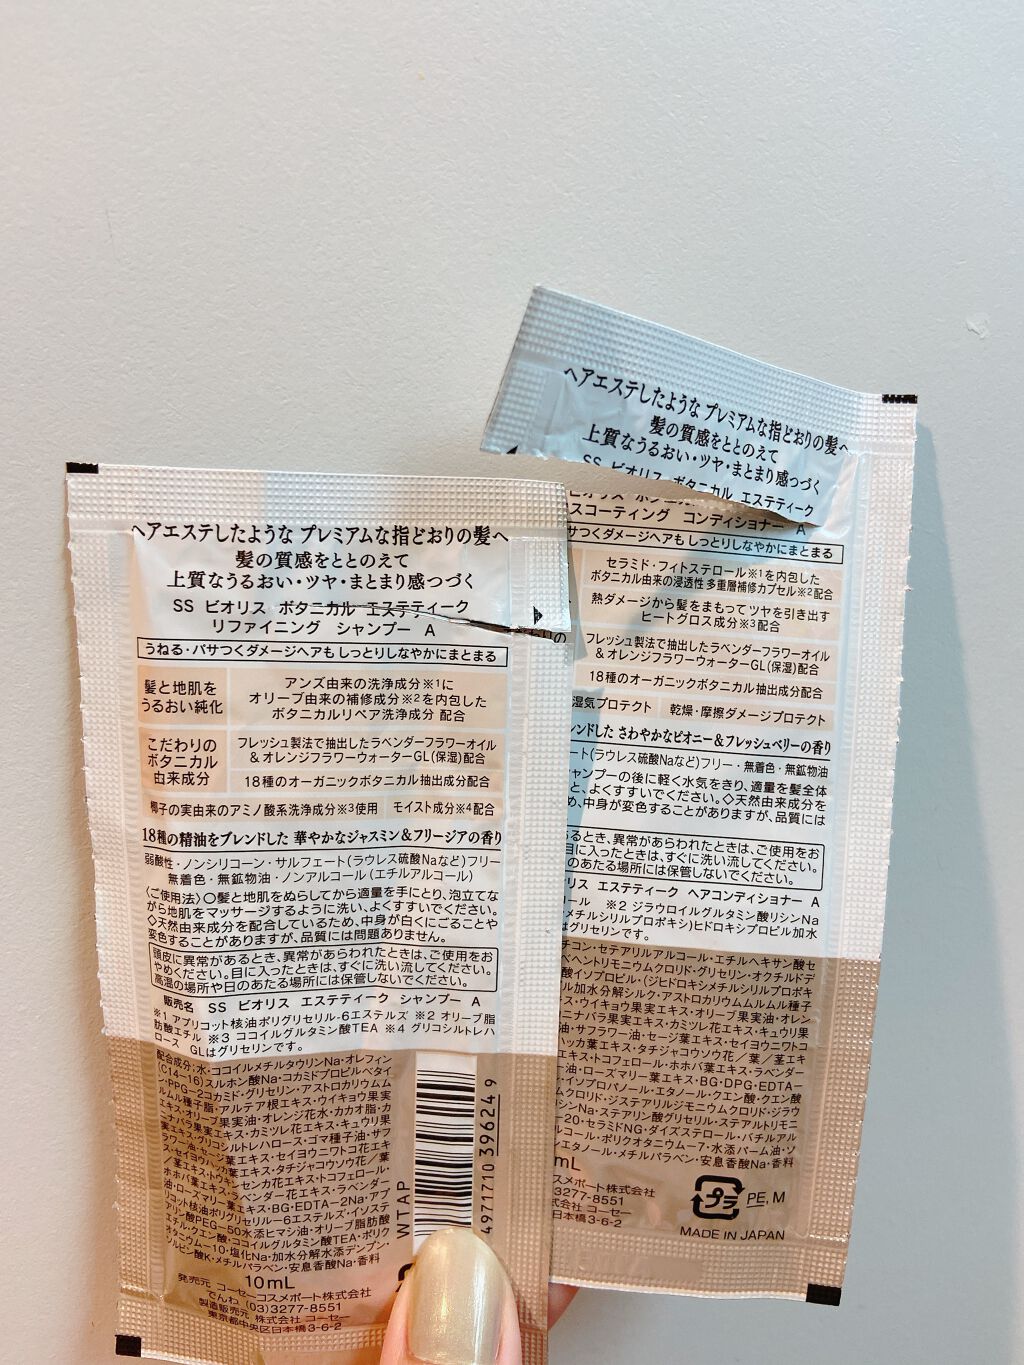 ヘアエステしたような プレミアムな指どおりの髪へ
髪の質感をととのえて
上質なうるおい・ツヤ・まとまり感つづく
SS ビオリス ボタニカル エステティーク
リファイニング シャンプー A
うねる・パサつくダメージヘアも しっとりしなやかにまとまる
髪と地肌を
うるおい純化
アンズ由来の洗浄成分※1に
オリーブ由来の補修成分※2を内包した
ボタニカルリペア洗浄成分 配合
こだわりの
ボタニカル
由来成分
フレッシュ製法で抽出したラベンダーフラワーオイル
&オレンジフラワーウォーターGL(保湿)配合
18種のオーガニックボタニカル抽出成分配合
椰子の実由来のアミノ酸系洗浄成分※3使用 モイスト成分※4配合
18種の精油をブレンドした 華やかなジャスミン&フリージアの香り
弱酸性・ノンシリコーン・サルフェート(ラウレス硫酸Naなど)フリー
無着色・無鉱物油・ノンアルコール(エチルアルコール)
〈ご使用法〉○髪と地肌をぬらしてから適量を手にとり、泡立てな
がら地肌をマッサージするように洗い、よくすすいでください。
◇天然由来成分を配合しているため、中身が白くにごることや
変色することがありますが、品質には問題ありません。
頭皮に異常があるとき、異常があらわれたときは、ご使用をお
やめください。目に入ったときは、すぐに洗い流してください。
高温の場所や日のあたる場所には保管しないでください。
販売名 SS ビオリス エステティーク シャンプー A
※1 アプリコット核油ポリグリセリル-6エステルズ ※2 オリーブ脂
肪酸エチル ※3 ココイルグルタミン酸TEA ※4 グリコシルトレハ
ロース GLはグリセリンです。
配合成分:水・ココイルメチルタウリンNa・オレフィン
(C14-16)スルホン酸Na・コカミドプロピルベタイ
ン・PPG-2コカミド・グリセリン・アストロカリウムム
ルムル種子脂・アルテア根エキス・ウイキョウ果実
エキス・オリーブ果実油・オレンジ花水・カカオ脂・カ
ニナバラ果実エキス・カミツレ花エキス・キュウリ果
実エキス・グリコシルトレハロース・ゴマ種子油・サフ
ラワー油・セージ葉エキス・セイヨウニワトコ花エキ
ス・セイヨウハッカ葉エキス・タチジャコウソウ花/葉
/茎エキス・トウキンセンカ花エキス・トコフェロール・
ホホバ葉エキス・ラベンダー花エキス・ラベンダー
油・ローズマリー葉エキス・BG・EDTA-2Na・アプ
リコット核油ポリグリセリル-6エステルズ・イソステ
アリン酸PEG-50水添ヒマシ油・オリーブ脂肪酸
エチル・クエン酸・ココイルグルタミン酸TEA・ポリク
オタニウム-10・塩化Na・加水分解水添デンプン・
ソルビン酸K・メチルパラベン・安息香酸Na・香料
10mL
発売元 コーセーコスメポート株式会社
でんわ (03)3277-8551
製造販売元 株式会社 コーセー
東京都中央区日本橋3-6-2
WTAP
4971710396249
ヘアエステしたような プレミアムな指どおりの髪へ
髪の質感をととのえて
上質なうるおい・ツヤ・まとまり感つづく
SS ビオリス ボタニカル エステティーク
スコーティング コンディショナー A
サつくダメージヘアも しっとりしなやかにまとまる
セラミド・フィトステロール※1を内包した
ボタニカル由来の浸透性 多重層補修カプセル※2配合
熱ダメージから髪をまもってツヤを引き出す
ヒートグロス成分※3配合
わりの
フレッシュ製法で抽出したラベンダーフラワーオイル
&オレンジフラワーウォーターGL(保湿)配合
18種のオーガニックボタニカル抽出成分配合
湿気プロテクト 乾燥・摩擦ダメージプロテクト
レンドした さわやかなピオニー&フレッシュベリーの香り
ート(ラウレス硫酸Naなど)フリー・無着色・無鉱物油
ャンプーの後に軽く水気をきり、適量を髪全体
と、よくすすいでください。◇天然由来成分を
め、中身が変色することがありますが、品質には
あるとき、異常があらわれたときは、ご使用をお
目に入ったときは、すぐに洗い流してください。
のあたる場所には保管しないでください。
リス エステティーク ヘアコンディショナー A
ール ※2 ジラウロイルグルタミン酸リシンNa
メチルシリルプロポキシ)ヒドロキシプロピル加水
はグリセリンです。
チコン・セテアリルアルコール・エチルヘキサン酸セ
ベヘントリモニウムクロリド・グリセリン・オクチルドデ
酸イソプロピル・(ジヒドロキシメチルシリルプロポキ
ル加水分解シルク・アストロカリウムムルムル種子
ス・ウイキョウ果実エキス・オリーブ果実油・オレン
ニナバラ果実エキス・カミツレ花エキス・キュウリ果
油・サフラワー油・セージ葉エキス・セイヨウニワトコ
ハッカ葉エキス・タチジャコウソウ花/葉/茎エキ
エキス・トコフェロール・ホホバ葉エキス・ラベンダー
油・ローズマリー葉エキス・BG・DPG・EDTA-
・イソプロパノール・エタノール・クエン酸・クエン酸
ムクロリド・ジステアリルジモニウムクロリド・ジラウ
シンNa・ステアリン酸グリセリル・ステアルトリモニ
-20・セラミドNG・ダイズステロール・バチルアル
ルコール・ポリクオタニウム-7・水添パーム油・ソ
シエタノール・メチルパラベン・安息香酸Na・香料
mL
スメポート株式会社
3277-8551
式会社 コーセー
日本橋3-6-2
プラ
PE, M
MADE IN JAPAN